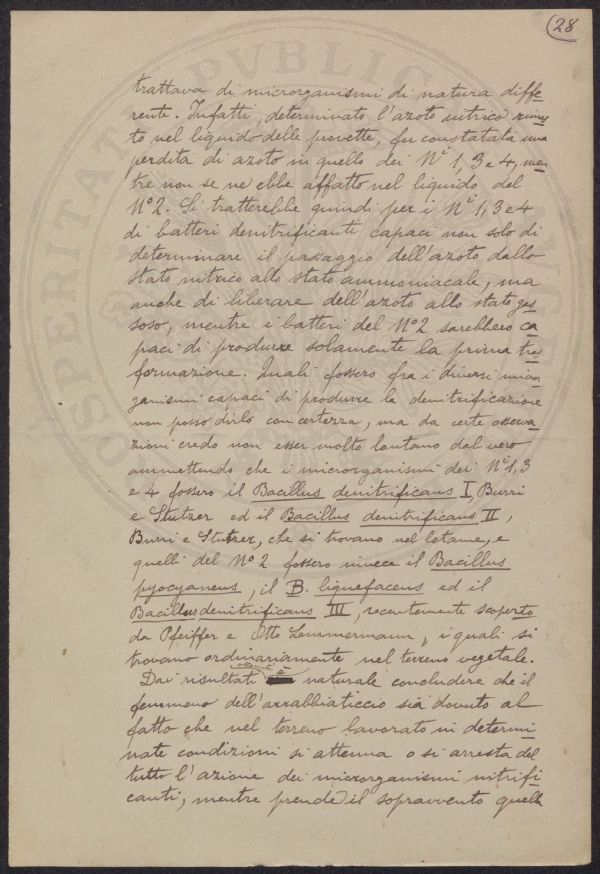 28
trattava di microrganismi di natura diffe-
rente. Infatti, determinato l'azoto nitrico rima-
to nel liquido delle provette, fu constatata una
perdita di azoto in quello dei Ni 1, 3 e 4, men-
tre non se ne ebbe affatto nel liquido del
No 2. Si tratterebbe quindi per i Ni 1, 3 e 4
di batteri denitrificanti capaci non solo di
determinare il passaggio dell'azoto dallo
stato nitrico allo stato ammoniacale, ma
anche di liberare dell'azoto allo stato gas-
soso, mentre i batteri del No 2 sarebbero ca-
paci di produrre solamente la prima tras-
formazione. Quali fossero fra i diversi micror-
ganismi capaci di produrre la denitrificazione
non posso dirlo con certezza, ma da certe osserva-
zioni credo non esser molto lontano dal vero
ammettendo che i microrganismi dei Ni 1, 3
e 4 fossero il Bacillus denitrificans I, Burri
e Stutzer ed il Bacillus denitrificans II,
Burri e Stutzer, che si trovano nel letame, e
quelli del No 2 fossero invece il Bacillus
pyocyaneus, il B. liquefaceus ed il
Bacillus denitrificans III, recentemente scoperto
da Pfeiffer e Otto Lemmermann, i quali si
trovano ordinariamente nel terreno vegetale.
Dai risultati ottenuti è naturale concludere che il
fenomeno dell'arrabbiaticcio sia dovuto al
fatto che nel terreno lavorato in determi-
nate condizioni si attenua o si arresta del
tutto l'azione dei microrganismi nitrifi-
canti, mentre prende il sopravvento quella